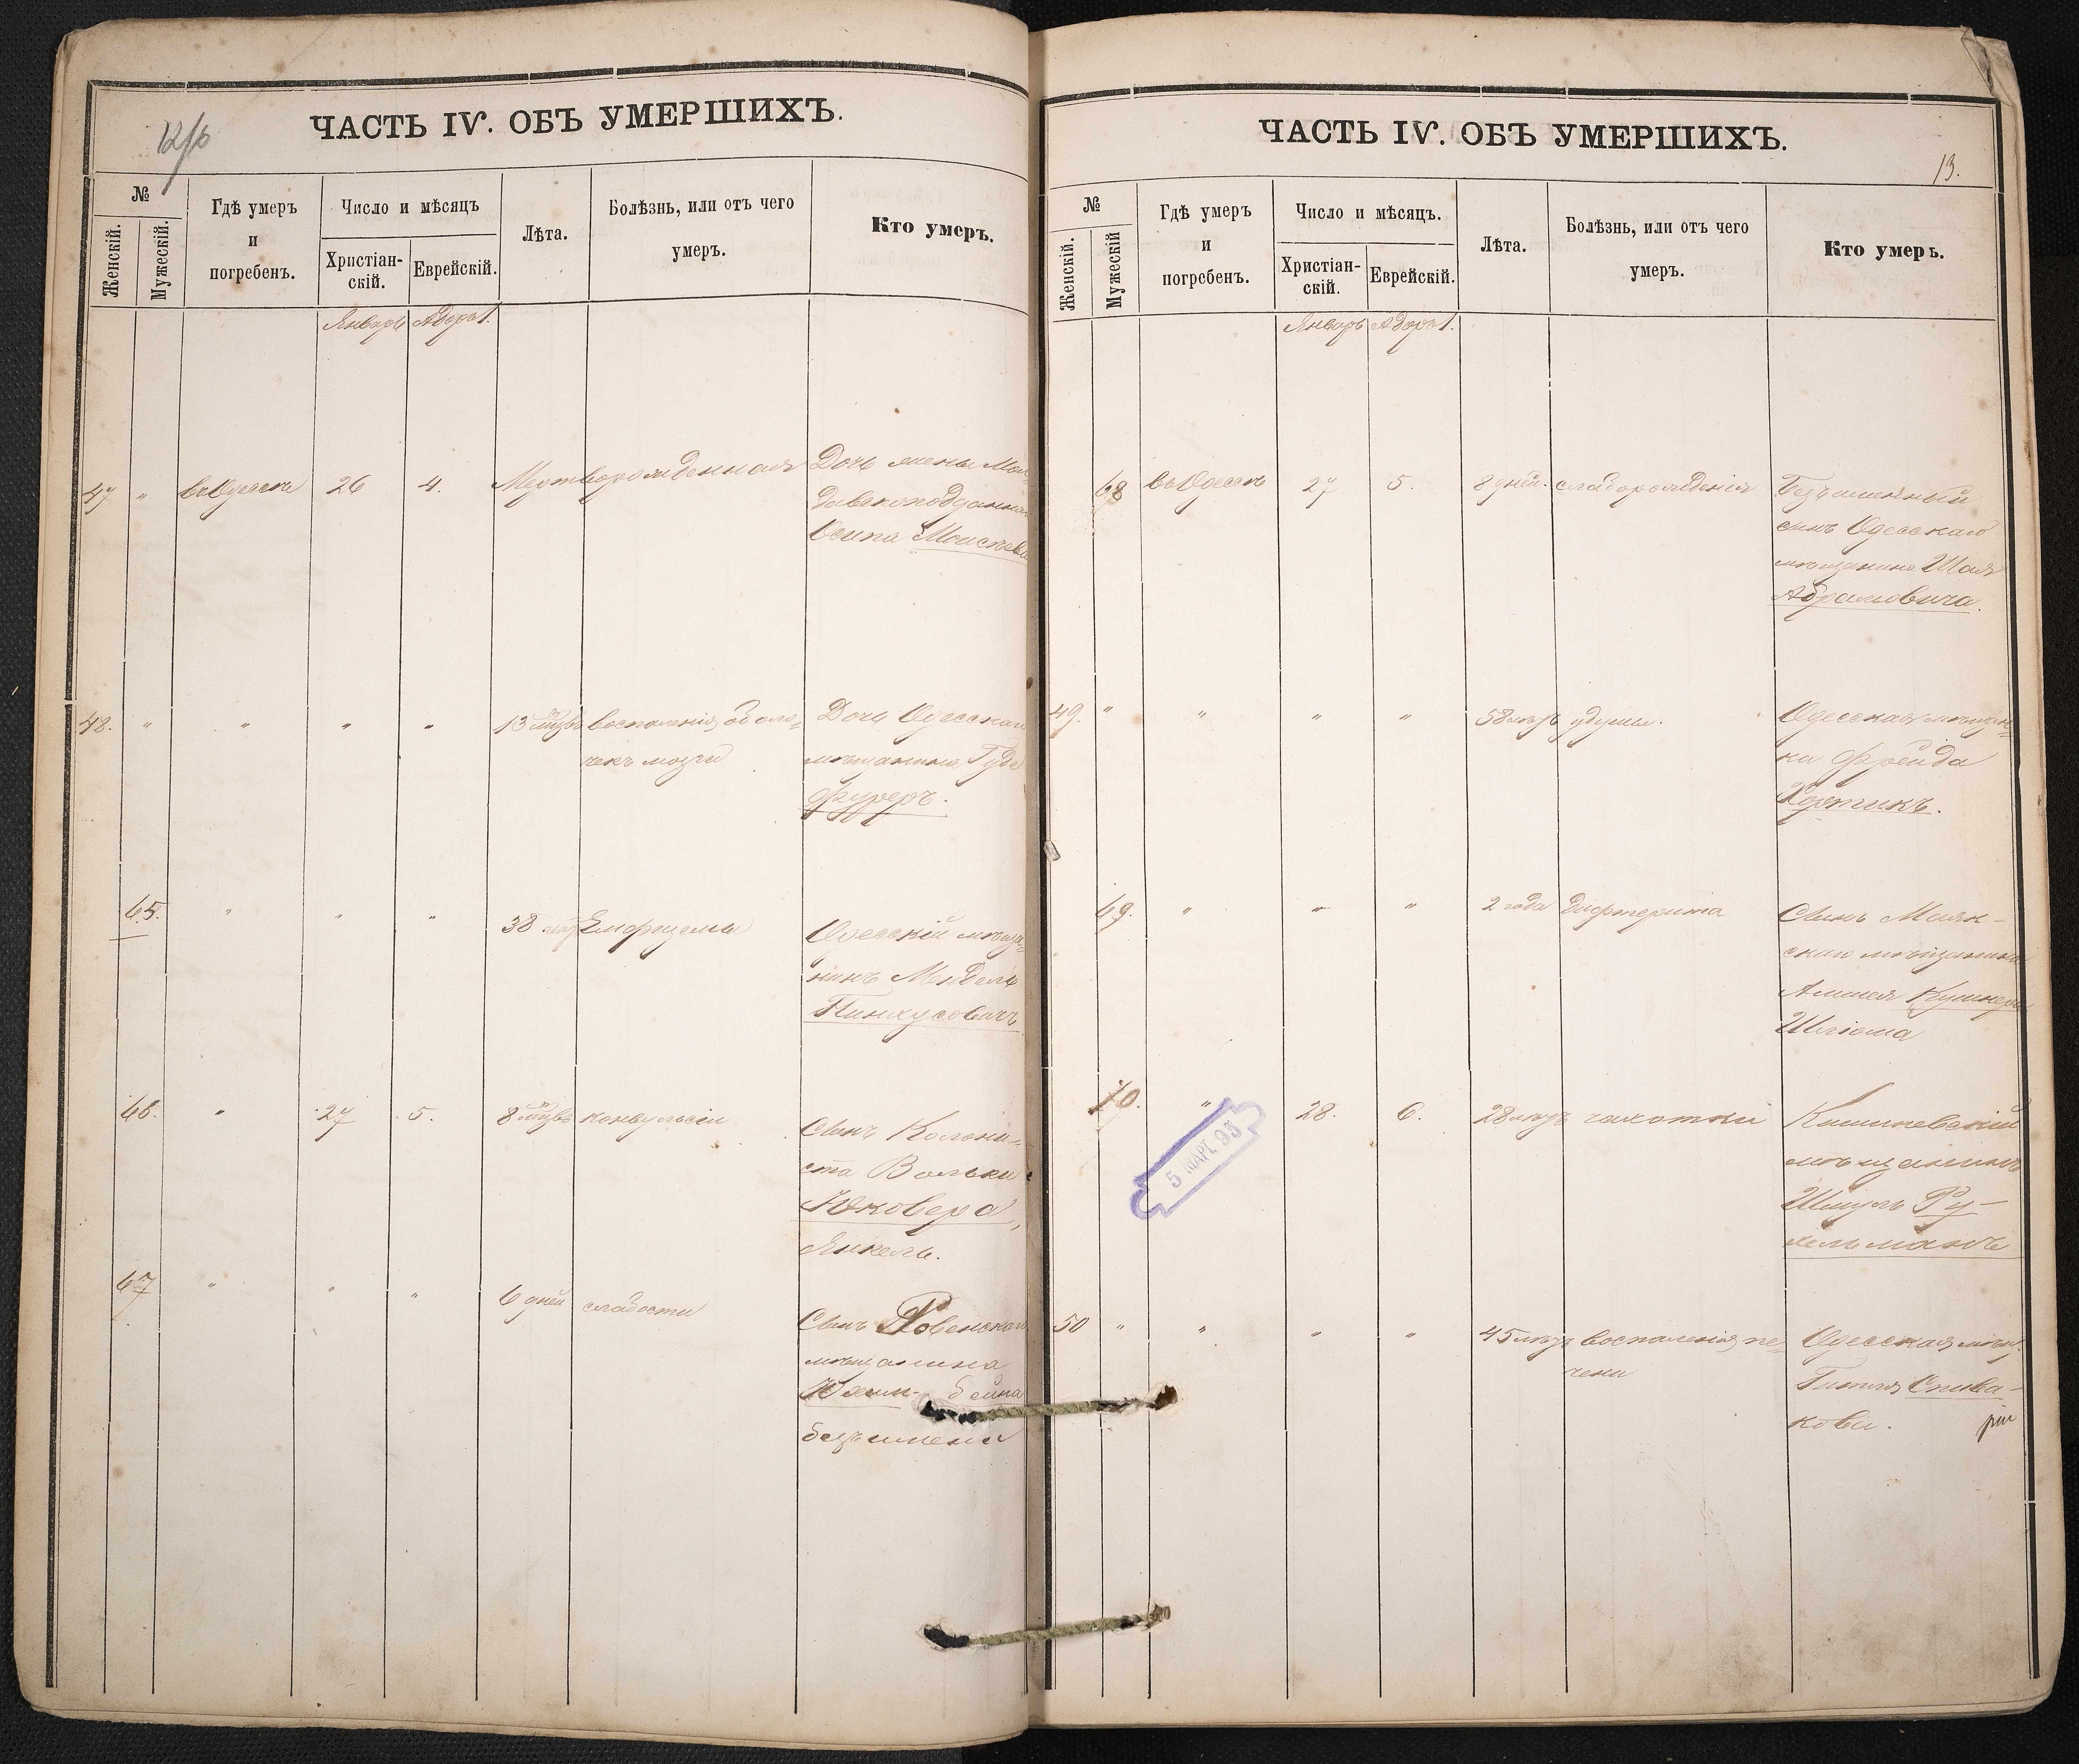 ЧАСТЬ IV. ОБЪ УМЕРШИХЪ.
№
Женскій.
Мужескій.
Гдѣ умеръ
и
погребенъ.
Число и мѣсяцъ
Христіан-
скій.
Еврейскій.
Лѣта.
Болѣзнь, или отъ чего
умеръ.
Кто умеръ.
Январь Адаръ 1.
47 " въ Одессѣ 26 4. Мертворожденная Дочь жены Мол-
давскоподданна
Осипа Моисѣева
48. " " " " 13 мѣцвъ воспаленія оболо- Дочь Одесскаго
чекъ мозга мѣщанина
Фуреръ.
65. " " " 38 лѣтъ Емфиземы Одесскій мѣща-
нинъ Мендель
Пинхусовичъ
66. " 27 5. 8 мѣцвъ конвульсіи Сынъ Колони-
ста Вольки
Юковера,
Янкель.
67 " " " 6 дней слабости Сынъ Ровенскаго
мѣщанина
безъ имени
ЧАСТЬ IV. ОБЪ УМЕРШИХЪ.
13.
№
Женскій.
Мужескій
Гдѣ умеръ
и
погребенъ.
Число и мѣсяцъ.
Христіан-
скій.
Еврейскій.
Лѣта.
Болѣзнь, или отъ чего
умеръ.
Кто умеръ.
Январь Адаръ 1.
68 въ Одессѣ 27 5. 8 дней. слаборожденія Безъименный
сынъ Одесскаго
мѣщанина Шая
Абрамовича.
49. " " " " 58 лѣтъ удушья. Одесская мѣщан-
ка Фрейда
Хортикъ.
69. " " " 2 года дифтерита Сынъ Маяк-
скаго мѣщанина
Кушнера
Шлiома
70. " 28. 6. 28 лѣтъ чахотки Кишиневскій
мѣщанинъ
Шмуль Ру-
хельманъ
5 МАРТ. 95
50 " " " " 45 лѣтъ воспаленія пе- Одесская мѣщ.
чени Гитля Спива-
кова.